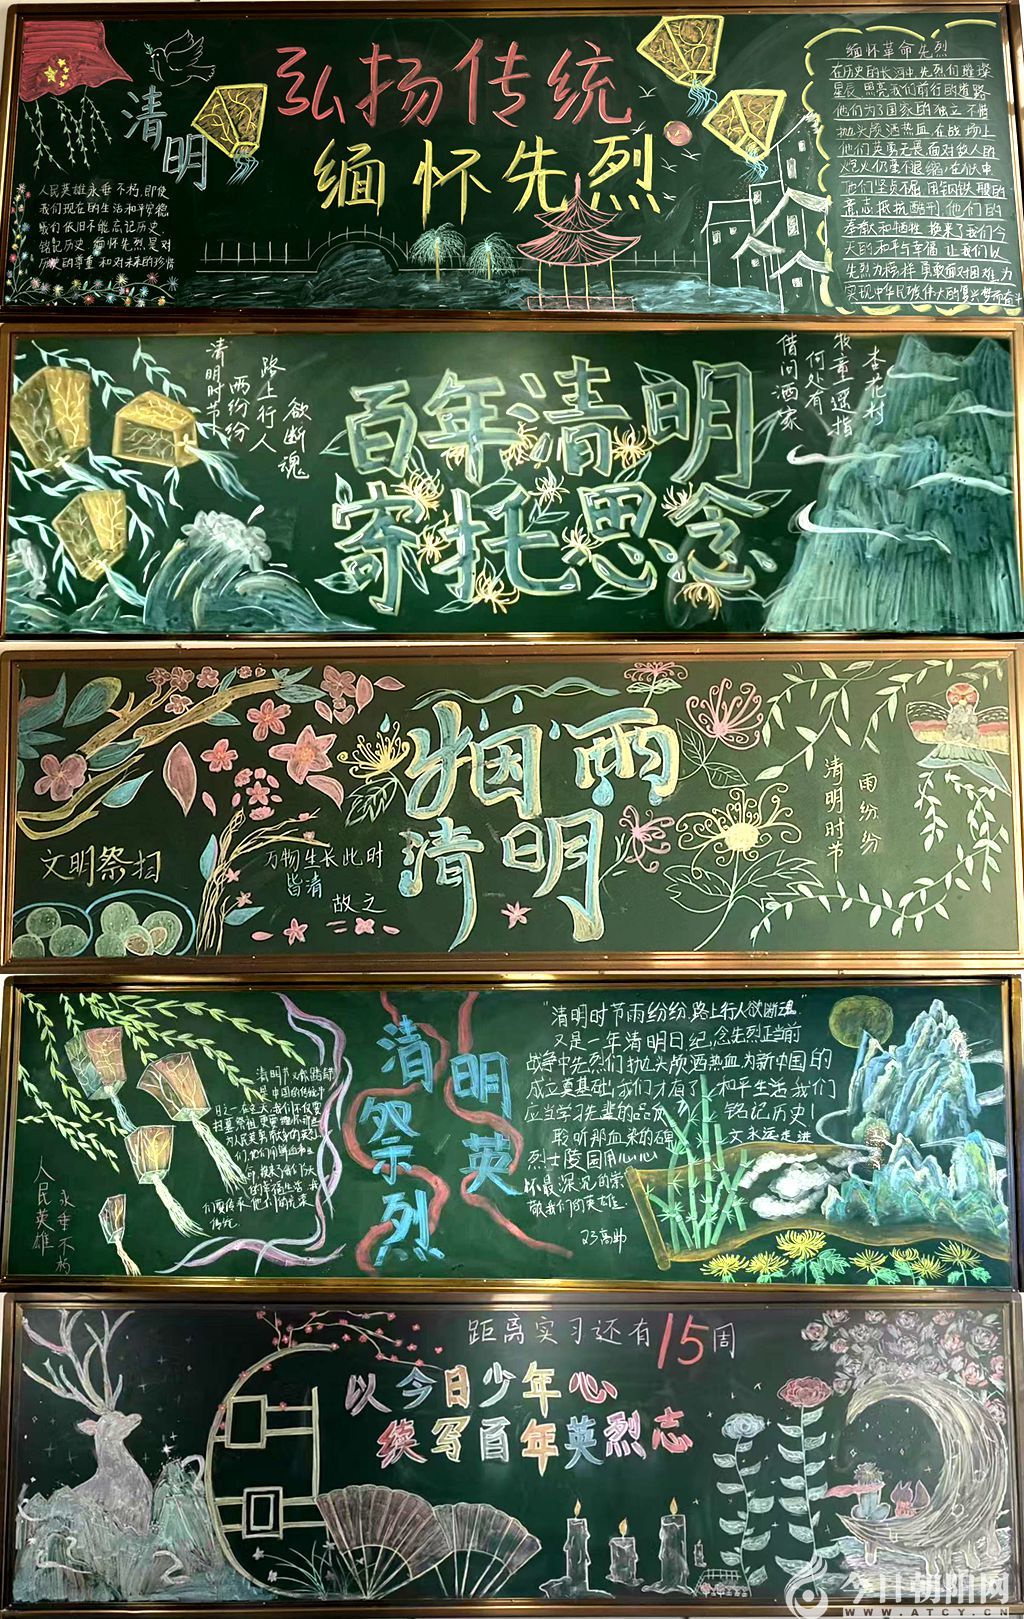 清明
弘扬传统
缅怀先烈
人民英雄永垂不朽,即使
我们现在的生活和平安稳
我们依旧不能忘记历史
铭记历史 缅怀先烈是对
历史的尊重 和对未来的珍惜
缅怀革命先烈
在历史的长河中,先烈们璀璨
星辰,照亮我们前行的道路
他们为了国家的独立 不惜
抛头颅洒热血,在战场上
他们英勇无畏,面对敌人的
炮火仍毫不退缩,在狱中
他们坚贞不屈,用钢铁般的
意志抵抗酷刑,他们的
奉献和牺牲 换来了我们今
天的和平与幸福 让我们以
先烈为榜样 勇敢面对困难,为
实现中华民族伟大的复兴梦而奋斗
清明时节
雨纷纷
路上行人
欲断魂
百年清明
寄托思念
借问酒家
何处有
牧童遥指
杏花村
烟雨
清明
文明祭扫
万物生长此时
皆清
故之
清明时节
雨纷纷
人民英雄
永垂不朽
清明
祭英
烈
"清明时节雨纷纷,路上行人欲断魂"
又是一年清明日纪念先烈正当前
战争中先烈们抛头颅洒热血为新中国的
成立奠基础,我们才有了 和平生活,我们
应当学习先辈的品 铭记历史
聆听那血染的碑文永远走进
烈士陵园用心
怀最深沉的崇
敬我们的英雄
距离实习还有15周
以今日少年心
续写百年英烈志
今日朝阳网
WWW.ATCY.CN